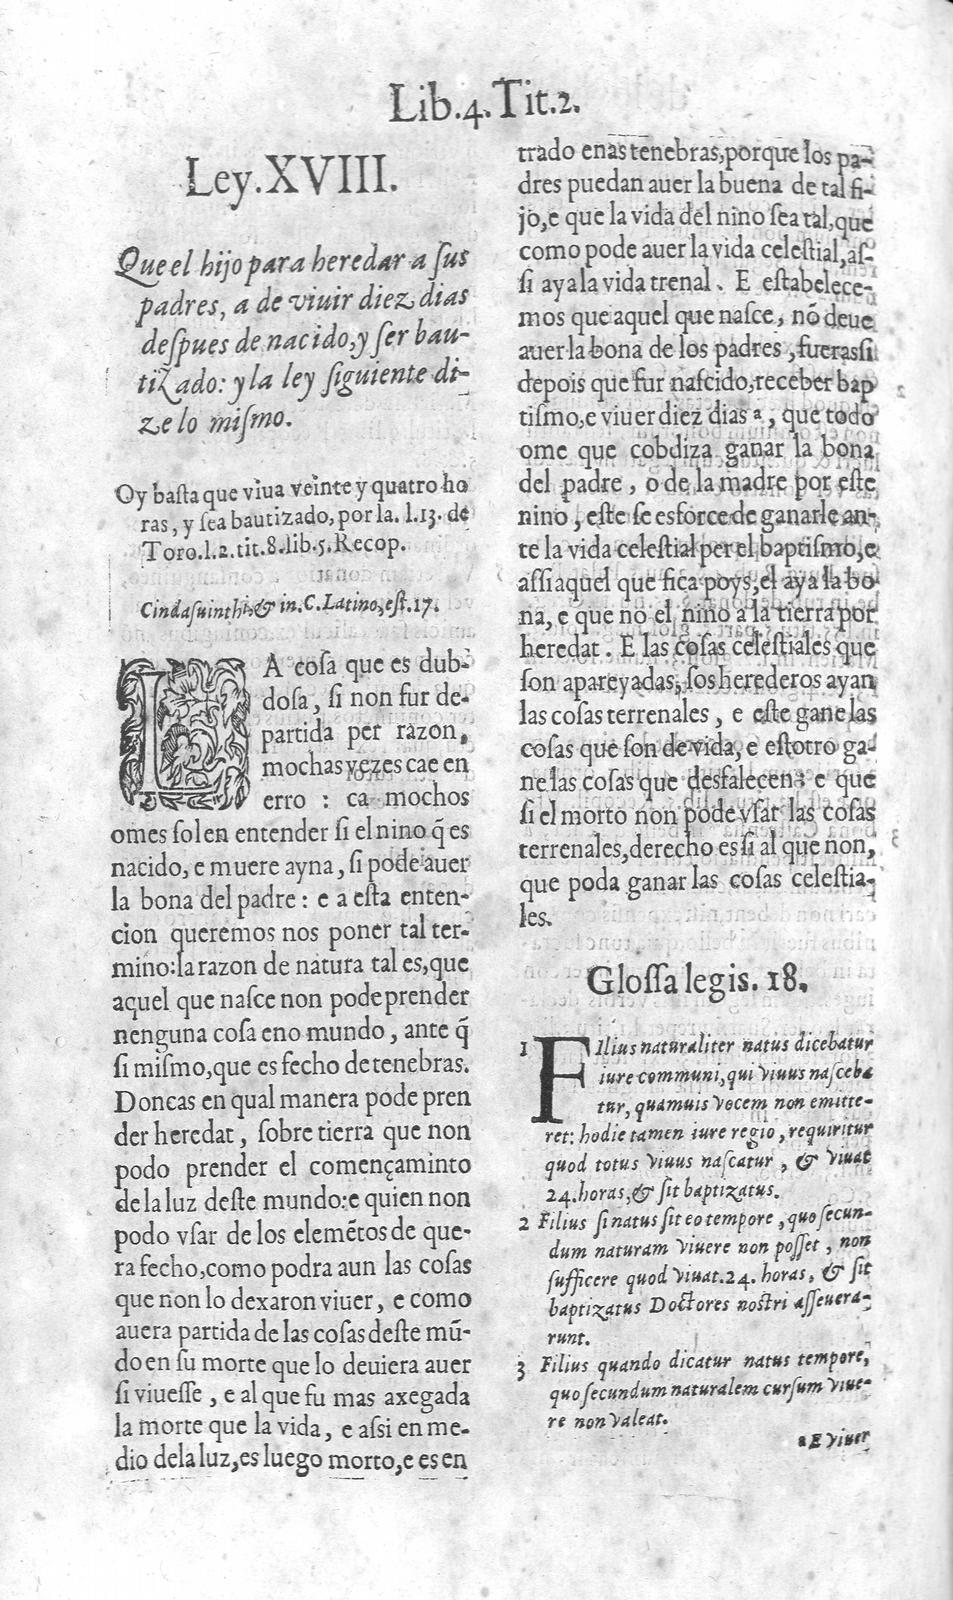 Lib.4.Tit.2.
Ley.XVIII.
Que el hijo para heredar a ſus
padres, a de viuir diez dias
deſpues de nacido, y ſer bau-
tizado: y la ley ſiguiente di-
ze lo miſmo.
Oy baſta que viua veinte y quatro ho
ras, y ſea bautizado, por la. l.13. de
Toro.l.2.tit.8.lib.5.Recop.
Cindaſuinthꝰ & in. C. Latino, eſt. 17.
LA coſa que es dub-
doſa, ſi non fur de-
partida per razon,
mochas vezes cae en
erro : ca mochos
omes ſolen entender ſi el nino q̃ es
nacido, e muere ayna, ſi pode auer
la bona del padre: e a eſta enten-
cion queremos nos poner tal ter-
mino: la razon de natura tal es, que
aquel que naſce non pode prender
nenguna coſa eno mundo, ante q̃
ſi miſmo, que es fecho de tenebras.
Doncas en qual manera pode pren
der heredat, ſobre tierra que non
podo prender el començaminto
de la luz deſte mundo: e quien non
podo vſar de los elemẽtos de que-
ra fecho, como podra aun las coſas
que non lo dexaron viuer, e como
auera partida de las coſas deſte mũ-
do en ſu morte que lo deuiera auer
ſi viueſſe, e al que fu mas axegada
la morte que la vida, e aſſi en me-
dio dela luz, es luego morto, e es en
trado enas tenebras, porque los pa-
dres puedan auer la buena de tal fi-
jo, e que la vida del nino ſea tal, que
como pode auer la vida celeſtial, aſ-
ſi aya la vida trenal. E eſtabelece-
mos que aquel que naſce, nõ deue
auer la bona de los padres, fueraſſi
depois que fur naſcido, receber bap
tiſmo, e viuer diez dias a, que todo
ome que cobdiza ganar la bona
del padre, o de la madre por eſte
nino, eſte ſe esforce de ganarle an-
te la vida celeſtial per el baptiſmo, e
aſſi aquel que fica poys, el aya la bo
na, e que no el nino a la tierra por
heredat. E las coſas celeſtiales que
ſon apareyadas, ſos herederos ayan
las coſas terrenales, e eſte gane las
coſas que ſon de vida, e eſtotro ga-
ne las coſas que desfalecen: e que
ſi el morto non pode vſar las coſas
terrenales, derecho es ſi al que non,
que poda ganar las coſas celeſtia-
les.
Gloſſa legis. 18.
1 FIlius naturaliter natus dicebatur
iure communi, qui viuus naſceba
tur, quamuis vocem non emitte-
ret: hodie tamen iure regio, requiritur
quod totus viuus naſcatur, & viuat
24. horas, & ſit baptizatus.
2 Filius ſi natus ſit eo tempore, quo ſecun-
dum naturam viuere non poſſet, non
ſufficere quod viuat. 24. horas, & ſit
baptizatus Doctores noſtri aſſeuera-
runt.
3 Filius quando dicatur natus tempore,
quo ſecundum naturalem curſum viue-
re non valeat.
a E viuer